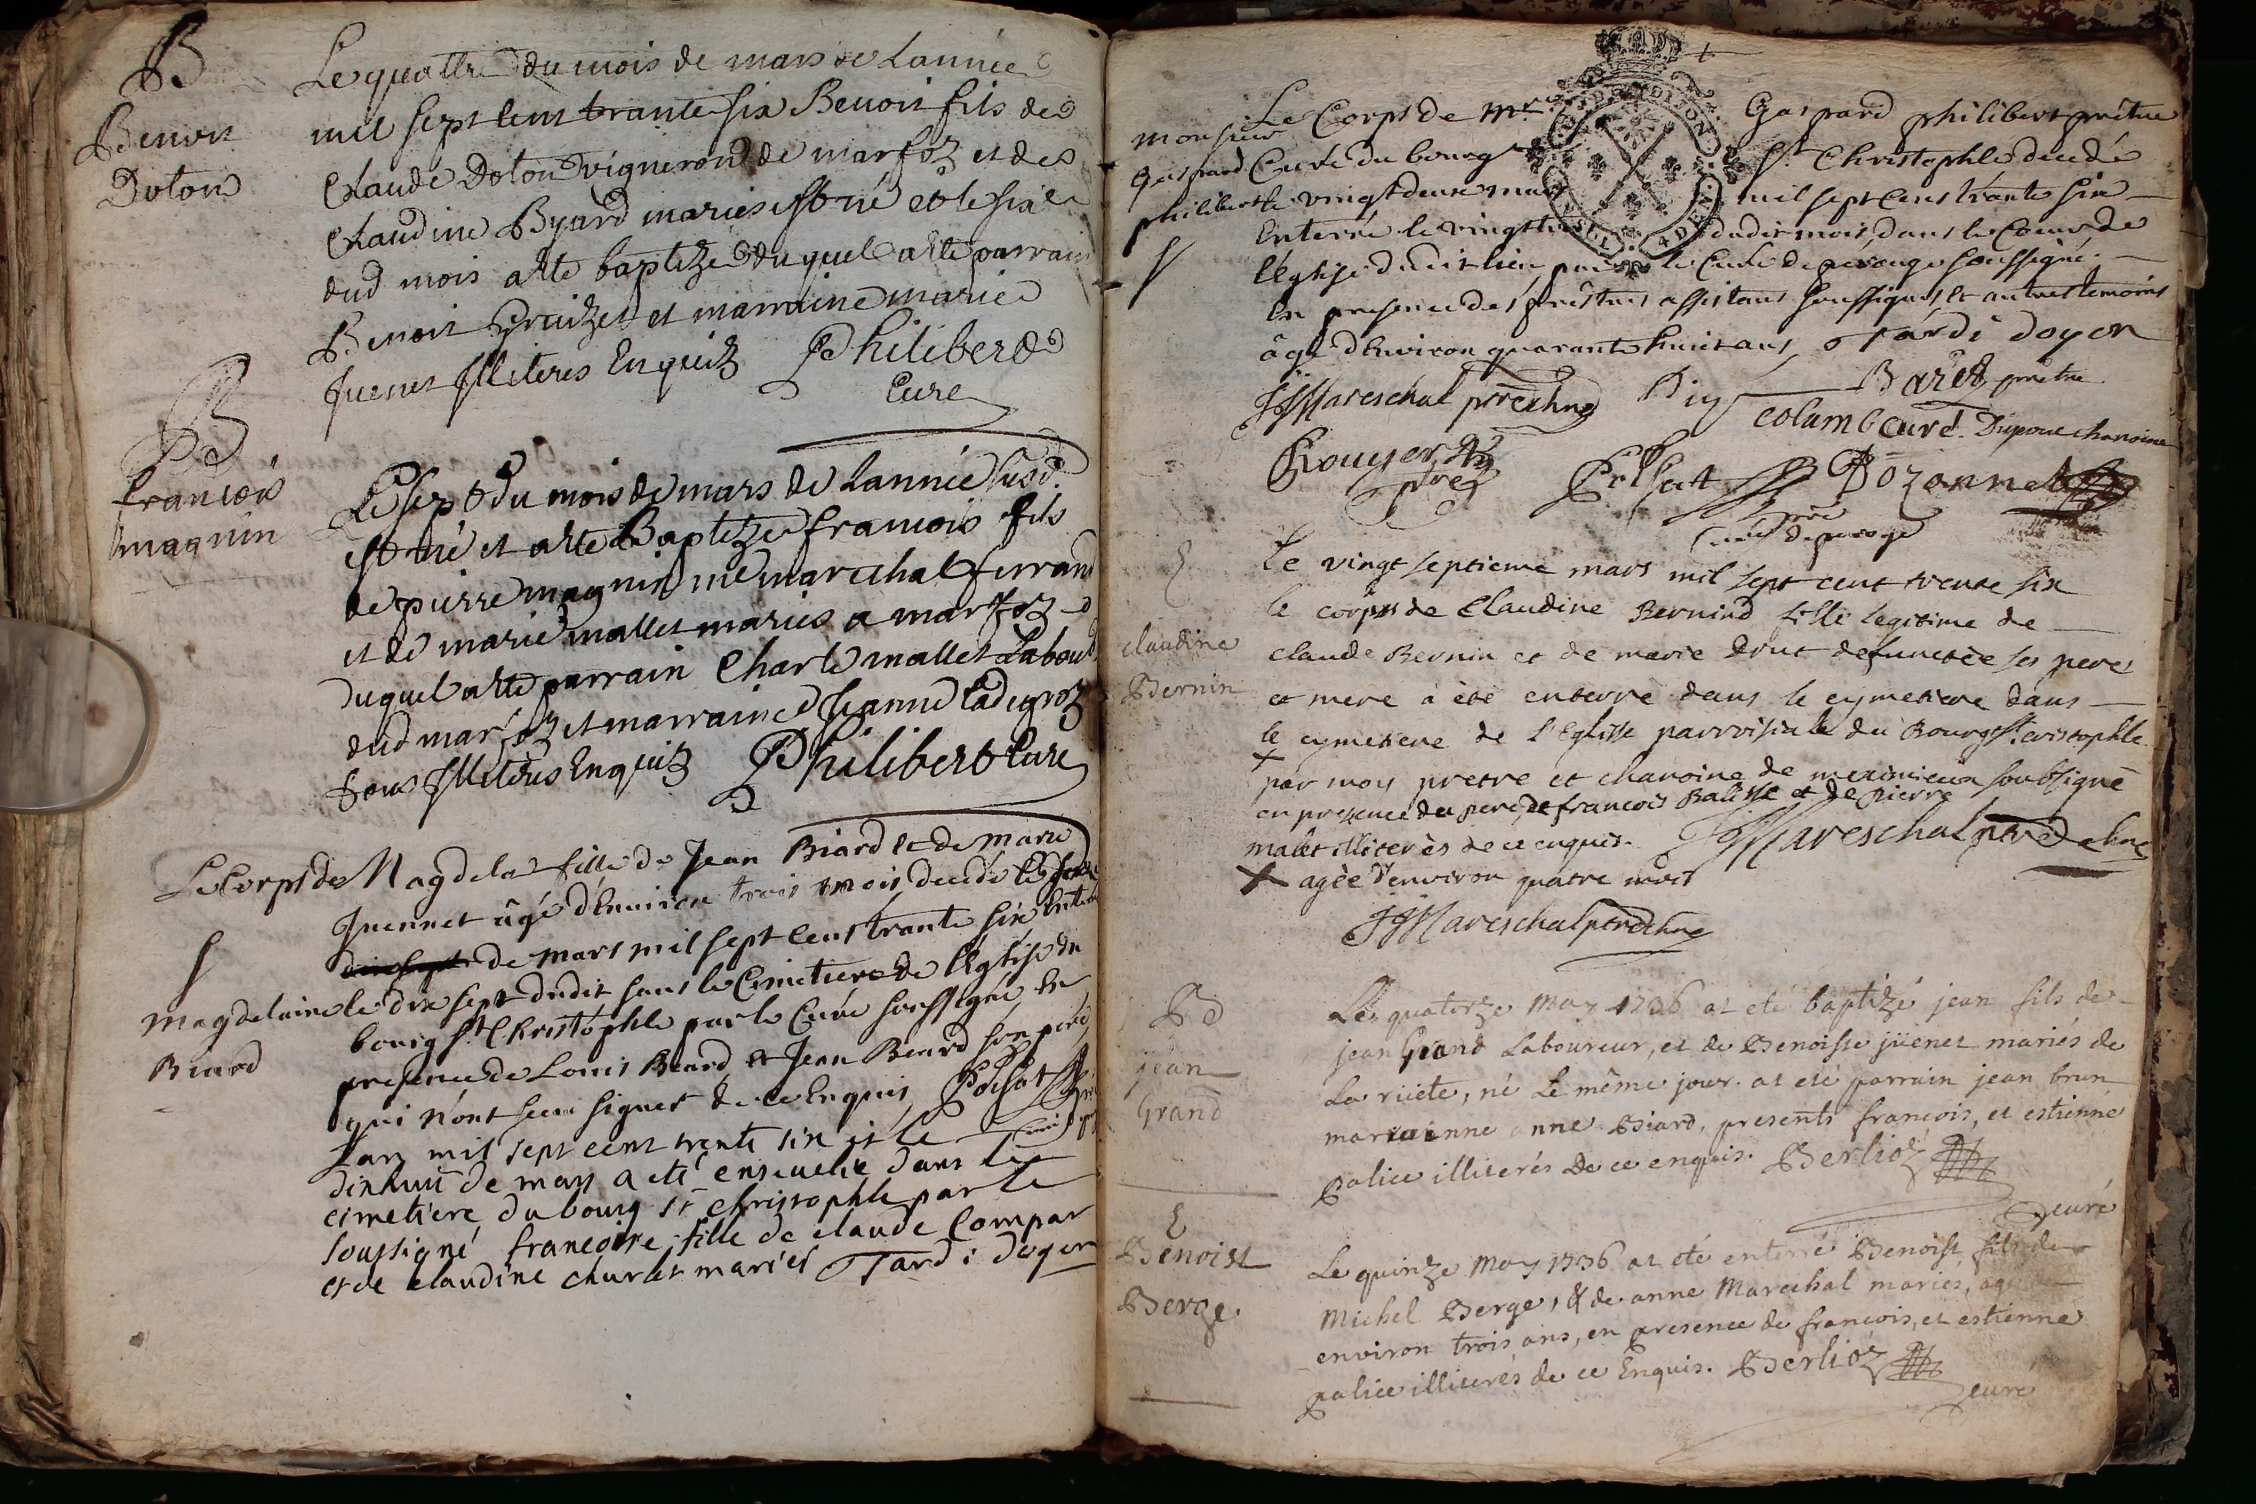 B
Benoit
Doton
Le quattre du mois de mars de Lannée
mil sept cent trante six Benoit fils de
Claude Doton vigneron de marfoz et de
Claudine Byard mariés est né et le six
dud mois a ete baptizé duquel a ete parrain
Benoit et marraine marie
Juenet Illiteres Enquis Philibert
Cure
B
francois
magnin
Le sept du mois de mars de Lannée susd.
est né et a ete Baptizé francois fils
de pierre magnin me marechal ferrand
et de marie mallet mariés a marfoz
duquel a ete parrain Charle mallet Labour
dud marfoz et marraine Jeanne
tous Illiteres Enquis Philibert Cure
Le Corps de Magdela fille de Jean Biard et de Marie
Juennet âgé d'Environ trois mois decedé le
de mars mil sept Cens trante six Enterré
S
Magdelaine
Biard
le dix sept dudit dans le Cimetiere de l'Eglise du
bourg St Christophle par le Curé soussigné, En
presence de Louis Beard et Jean Beard son pere
qui n'ont sceu signer de ce Enquis,
Lan mil sept cent trente six et le
dixhuit de mars a eté ensevelie dans le
cimetiere du bourg st christophle par le
soussigné francoise fille de claude Compar
et de claudine churlet mariés Tardi doyen
Monsieur
Gaspard
philibert
S
Le Corps de Mre Gaspard philibert prêtre
Curé du bourg St Christophle decedé
le vingt deux mars mil sept Cens trante six
Enterré le vingt trois dudit mois dans le Coeur de
l'Eglise dudit lieu par le Curé de perouge soussigné.
En presence des prêtres assistans soussignés, et autres temoins
âgé d'Environ quarante huit ans, Tardi doyen
JMareschal ptre chne Baret prêtre
Colomb curé. Dupoue chanoine
Rouyer ptre Bozonnet
Curé de perouge
E
claudine
Bernin
Le vingt septieme mars mil sept cent trente six
le corps de Claudine Bernind fille legitime de
claude Bernin et de marie Drut defunctée ses pere
et mere à été enterré dans le cymetiere dans
le cymetiere de l'Eglisse parroisialle du Bourg St. cristophle
+
par moy pretre et chanoine de meximieux soubsigné
en presence du pere, de francois Balisse et de Pierre
malet illiterés de ce enquis. JMareschal ptre chne
+ agée d'environ quatre mois
JMareschal ptre chne
B
jean
Grand
Le quatorze May 1736 at eté baptizé jean fils de
jean Grand Laboureur, et de Benoisse jüenet mariés de
La rüete, né Le même jour. at eté parrain jean brun
marraine anne Biard, presents francois, et estienne
palice illiterés de ce enquis. Berlioz
curé
E
Benoist
Berge.
Le quinze May 1736 at eté enterré Benoist fils de
Michel Berge, & de anne Marechal mariés, agé de
environ trois ans, en presence de francois, et estienne
palice illiterés de ce Enquis. Berlioz
curé